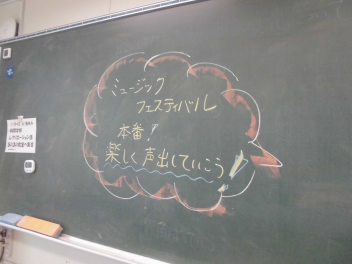 ミュージック
フェスティバル
本番!
楽しく声出していこう!